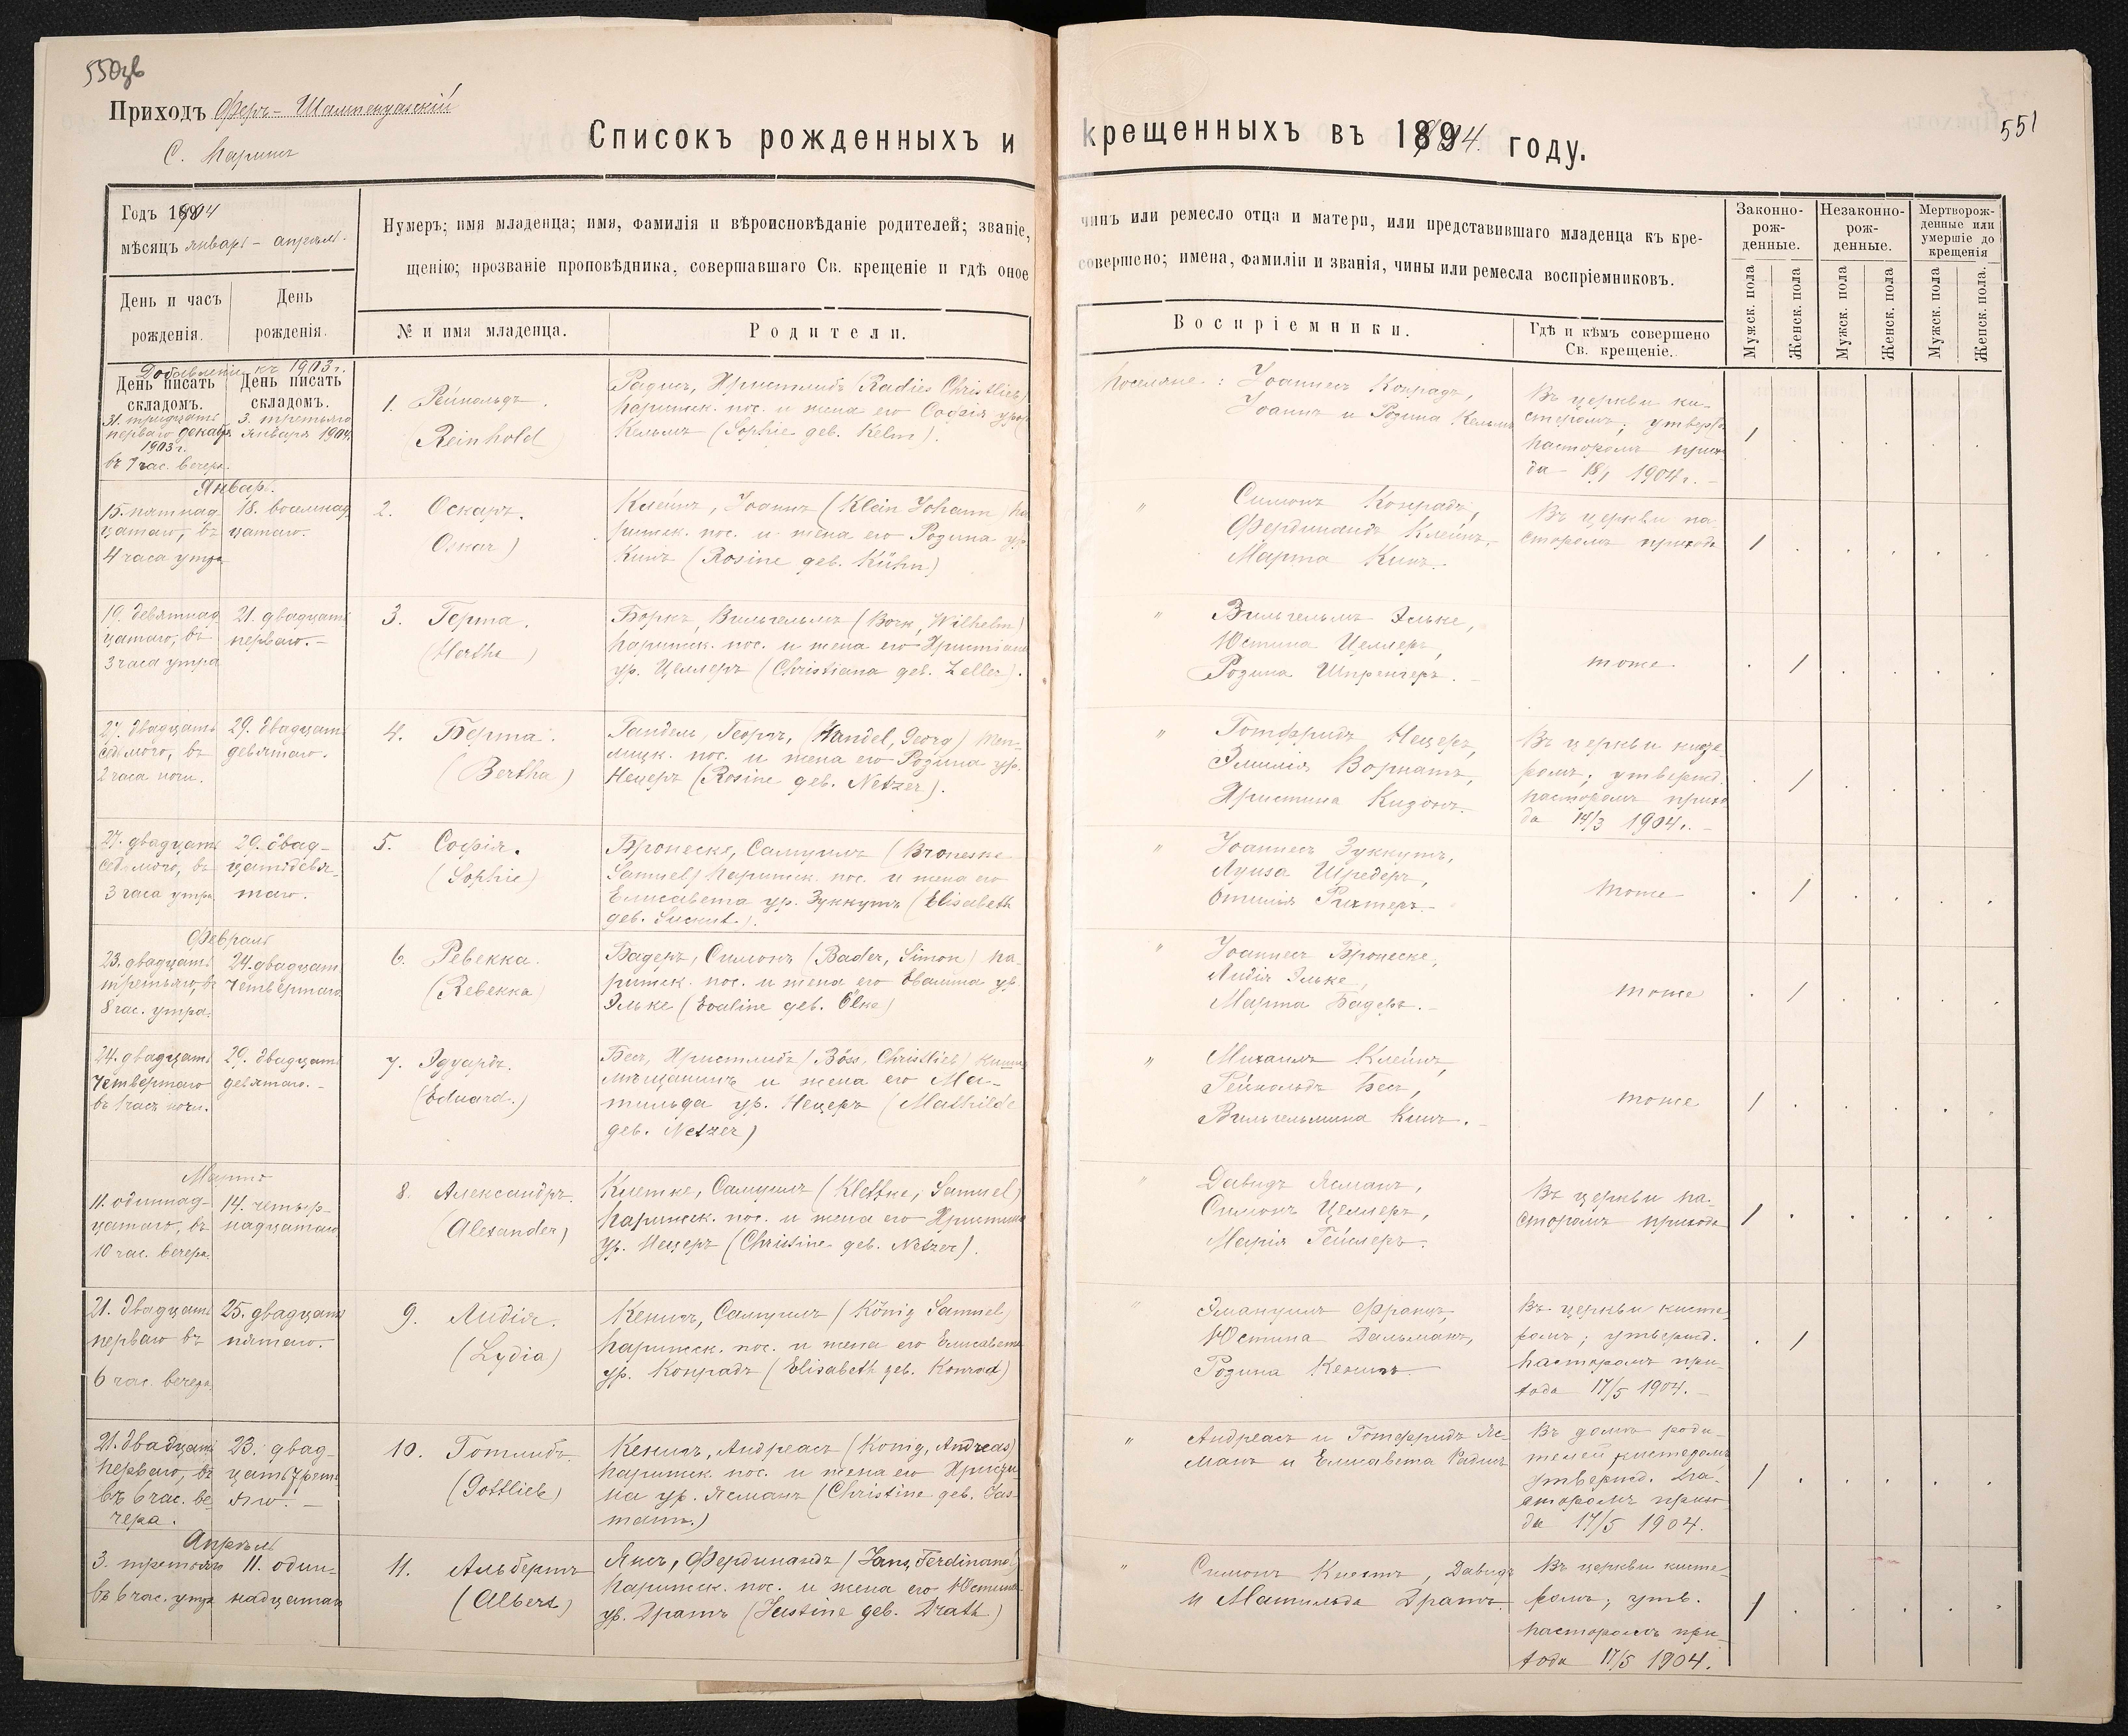 550зв
Приходъ Феръ-Шампенуазскій
С. Парижъ
Списокъ рожденныхъ и крещенныхъ въ 1904. году.
551
Годъ 1904
мѣсяцъ январь - апрѣль.
Нумеръ; имя младенца; имя, фамилія и вѣроисповѣданіе родителей; званіе, чинъ или ремесло отца и матери, или представившаго младенца къ кре-
щенію; прозваніе проповѣдника, совершавшаго Св. крещеніе и гдѣ оное совершено; имена, фамиліи и званія, чины или ремесла воспріемниковъ.
Законно-
рож-
денные.
Незаконно-
рож-
денные.
Мертворож-
денные или
умершіе до
крещенія
День и часъ
рожденія.
День
рожденія.
№ и имя младенца.
Родители.
Воспріемники.
Гдѣ и кѣмъ совершено
Св. крещеніе.
Мужск. пола
Женск. пола
Мужск. пола
Женск. пола
Мужск. пола
Женск. пола.
Добавленіе къ 1903 г.
День писать
складомъ.
День писать
складомъ.
31. тридцать
перваго декабр.
1903 г.
въ 7 час. вечера.
3. третьяго
января 1904.
1. Рейнольдъ.
(Reinhold)
Радисъ, Христлибъ Radies Christlieb)
парижск. пос. и жена его Софія урож.
Кельмъ (Sophie geb. Kelm).
Поселяне: Іоаннесъ Конрадъ,
Іоаннъ и Розина Кельмъ
Въ церкви ки-
стеромъ; утвержд.
пасторомъ прихо-
да 18/1 1904 г.
1 . . . . .
Январь.
15. пятнад
цатаго, въ
4 часа утра
18. восемнад
цатаго.
2. Оскаръ.
Oskar)
Клейнъ, Іоаннъ (Klein Johann) па
рижск. пос. и жена его Розина ур.
Кинъ (Rosine geb. Kühn)
" Симонъ Конрадъ,
Фердинандъ Клейнъ,
Марта Кинъ.
Въ церкви па
сторомъ прихода
1 . . . . .
19. девятнад
цатаго, въ
3 часа утра
21. двадцать
перваго. -
3. Герта.
(Hertha)
Боркъ, Вильгельмъ (Bork, Wilhelm)
парижск. пос. и жена его Христіана
ур. Целлеръ (Christiana geb. Zeller).
" Вильгельмъ Эльке,
Юстина Целлеръ,
Розина Шпренгеръ. -
тоже
. 1 . . . .
27. двадцать
седьмого, въ
2 часа ночи.
29. двадцать
девятаго.
4. Берта.
(Bertha)
Гандель, Георгъ, (Handel, Georg)
пос. и жена его Розина ур.
Нецеръ (Rosine geb. Netzer).
" Готфридъ Нецеръ,
Эмилія Ворнатъ,
Христина
Въ церкви кисте
ромъ; утвержд.
пасторомъ прихо
да 14/3 1904 г. -
. 1 . . . .
27. двадцать
седьмого, въ
3 часа утра
29. двад-
цатьдевя-
таго.
5. Софія.
(Sophie)
Бронеске, Самуилъ (Broneske
Samuel) парижск. пос. и жена его
Елисавета ур. Зуккутъ (Elisabeth
geb. Suckut.)
" Іоаннесъ Зуккутъ,
Луиза Шредеръ,
Отилія Рихтеръ.
тоже
. 1 . . . .
Февраль
23. двадцать
третьяго, въ
8 час. утра.
24. двадцать
четвертаго
6. Ревекка.
(Rebekka)
Бадеръ, Симонъ (Bader, Simon) па
рижск. пос. и жена его Евалина ур.
Эльке (Evaline geb. Ölke)
" Іоаннесъ Бронеске,
Лидія Эльке,
Марта Бадеръ. -
тоже
. 1 . . . .
24. двадцать
четвертаго
въ 1 часъ ночи.
29. двадцать
девятаго. -
7. Эдуардъ.
(Eduard.)
Бесъ, Христлибъ (Böss, Christlieb)
мѣщанинъ и жена его Ма-
тильда ур. Нецеръ (Mathilde
geb. Netzer)
" Михаилъ Клейнъ,
Рейнольдъ Бесъ,
Вильгельмина Кинъ. -
тоже
1 . . . . .
Мартъ
11. одиннад-
цатаго, въ
10 час. вечера.
14. четыр-
надцатаго
8. Александръ.
(Alexander)
Клетке, Самуилъ (Klettke, Samuel)
парижск. пос. и жена его Христина
ур. Нецеръ (Christine geb. Netzer).
" Давидъ Ясманъ,
Симонъ Целлеръ,
Марія Гейлеръ.
Въ церкви па-
сторомъ прихода
1 . . . . .
21. двадцать
перваго въ
6 час. вечера.
25. двадцать
пятаго.
9. Лидія.
(Lydia)
Кенигъ, Самуилъ (König Samuel)
парижск. пос. и жена его Елисавета
ур. Конрадъ (Elisabeth geb. Konrad)
" Эмануилъ Францъ,
Юстина Дальманъ,
Розина Кенигъ.
Въ церкви кисте-
ромъ; утвержд.
пасторомъ при-
хода 17/5 1904. -
. 1
21. двадцать
перваго, въ
въ 6 час. ве
чера.
23. двад-
цать треть
яго. -
10. Готлибъ.
(Gottlieb)
Кенигъ, Андреасъ (König, Andreas)
парижск. пос. и жена его Христи
на ур. Ясманъ (Christine geb. Jas-
mann.)
" Андреасъ и Готфридъ Яс-
манъ и Елисавета Радисъ
Въ домѣ роди-
телей кистеромъ
утвержд. па-
сторомъ прихо
да 17/5 1904.
1 . . . . .
Апрѣль
3. третьяго
въ 6 час. утра
11. один-
надцатаго
11. Альбертъ
(Albert.)
Янсъ, Фердинандъ (Jans, Ferdinand)
парижск. пос. и жена его Юстина
ур. Дратъ (Justine geb. Drath.)
" Симонъ Клеттъ, Давидъ
и Матильда Дратъ.
Въ церкви кисте-
ромъ; утв.
пасторомъ при-
хода 17/5 1904.
1 . . . . .